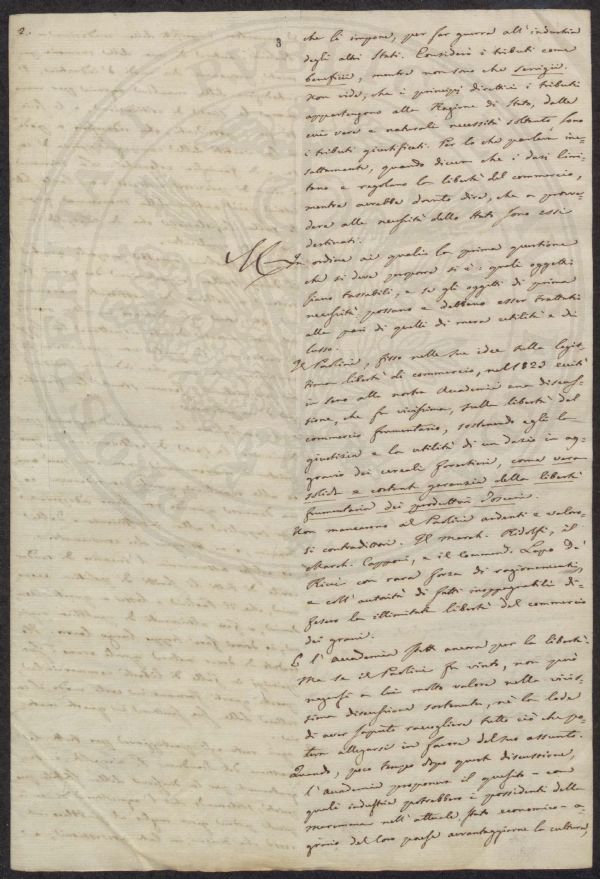 2.
3
che le impone, per far guerra all'industria
degli altri Stati. Considerò i tributi come
benefizi, mentre non sono che servigii.
Non vide, che i principj direttivi i tributi
appartengono alla Ragione di Stato, dalle
cui vere e naturali necessità soltanto sono
i tributi giustificati. Per lo che parlava ine-
sattamente, quando diceva che i dazi limi-
tano e regolano la libertà del commercio,
mentre avrebbe dovuto dire, che a provve-
dere alle necessità dello Stato sono essi
destinati.
In ordine ai quali la prima questione
che si deve proporre si è: quali oggetti
siano tassabili, e se gli oggetti di prima
necessità possano e debbano esser trattati
alla pari di quelli di mera utilità e di
lusso.
Il Paolini, fisso nelle sue idee sulla legit-
tima libertà di commercio, nel 1823 eccitò
in seno alla nostra Accademia una discus-
sione, che fu vivissima, sulla libertà del
commercio frumentario, sostenendo egli la
giustizia e la utilità di un dazio in ag-
gravio dei cereali forestieri, come vera
solida e costante garanzia della libertà
frumentaria dei produttori Toscani.
Non mancarono al Paolini ardenti e valoro-
si contradittori. Il March. Ridolfi, il
March. Capponi, e il Commend. Lapo de'
Ricci con rara forza di ragionamenti,
e coll'autorità di fatti inappugnabili di-
fesero la illimitata libertà del commercio
dei grani.
E l'Accademia stette ancora per la libertà.
Ma se il Paolini fu vinto, non però
negossi a lui molto valore nella vivis-
sima discussione sostenuta, nè la lode
di aver saputo raccogliere tutto ciò che po-
teva allegarsi in favore del suo assunto.
Quando, poco tempo dopo questa discussione,
l'Accademia propose il quesito - con
quali industrie potrebbero i possidenti della
maremma nell'attuale stato economico-a-
grario del loro paese avvantaggiarne la cultura,